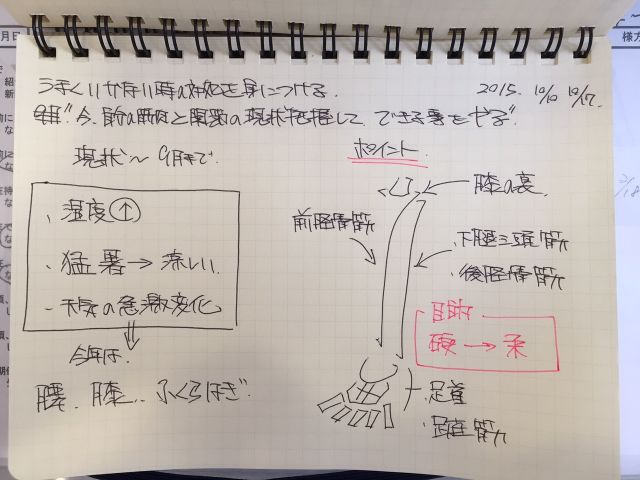 うまくいかない時の対処を身につける.
2015. 10/10 10/17.
"今.前の筋肉と関節の現状把握して できる事をやる"
現状〜9月まで.
ポイント
・湿度↑
・猛暑→涼しい
・天気の急激変化
今年は.
腰.膝.ふくらはぎ.
膝の裏
前脛骨筋
下腿三頭筋
後脛骨筋
目的
硬→柔
足首
足底筋
月日
様方